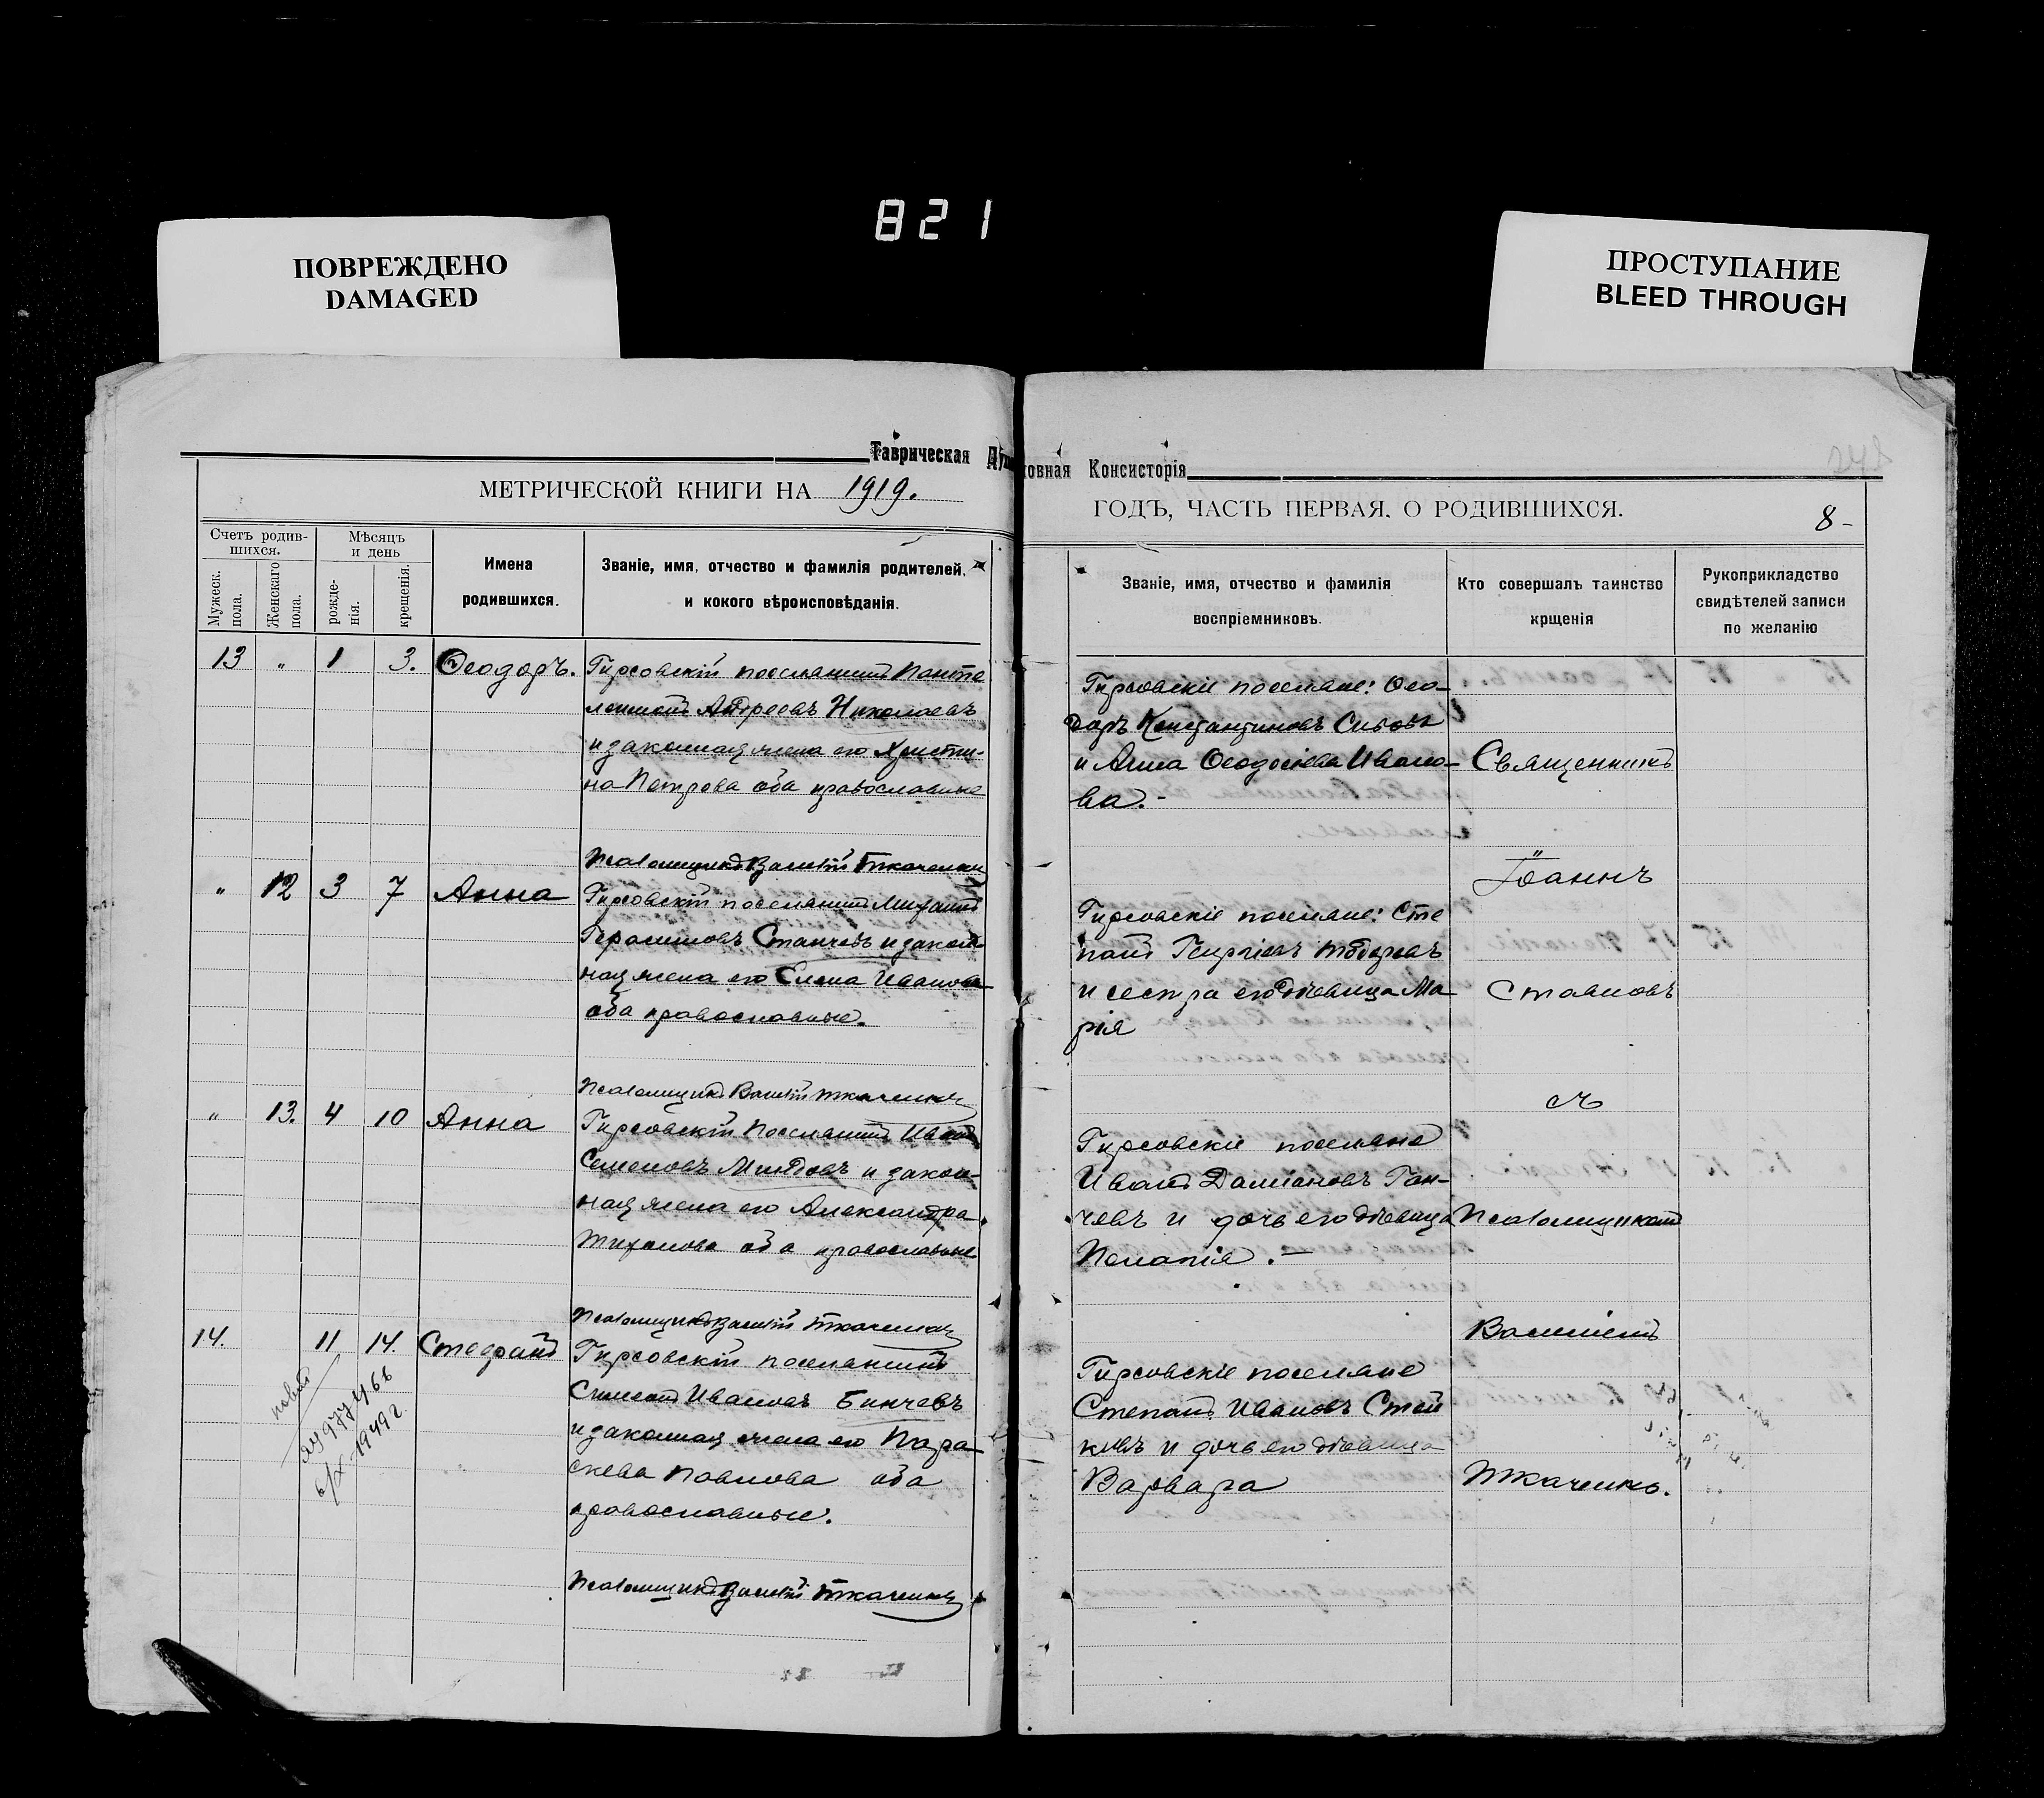 821
ПОВРЕЖДЕНО
DAMAGED
ПРОСТУПАНИЕ
BLEED THROUGH
Таврическая Духовная Консисторія
МЕТРИЧЕСКОЙ КНИГИ НА 1919.
Счетъ родив-
шихся.
Мѣсяцъ
и день
Мужеск.
пола.
Женскаго
пола.
рожде-
нія.
крещенія.
Имена
родившихся.
Званіе, имя, отчество и фамилія родителей,
и кокого вѣроисповѣданія.
13 „ 1 3. Ѳеодоръ. Гирсовскій поселянинъ Панте
леимонъ Андреевъ Николаевъ
и законная жена его Христи-
на Петрова оба православные
Псаломщикъ Василій Ткаченко
„ 12 3 7 Анна Гирсовскій поселянинъ Михаилъ
Герасимовъ Станчевъ и закон-
ная жена его Елена Иванова
оба православные.
Псаломщикъ Василій Ткаченко
„ 13. 4 10 Анна Гирсовскій поселянинъ Иванъ
Семеновъ Митовъ и закон-
ная жена его Александра
оба православные
Псаломщикъ Василій Ткаченко
14. 11 14. Стефанъ Гирсовскій поселянинъ
Симеонъ Ивановъ Бинчевъ
и законная жена его Пара-
скева Павлова оба
православные.
1949 г.
Псаломщикъ Василій Ткаченко
ГОДЪ, ЧАСТЬ ПЕРВАЯ, О РОДИВШИХСЯ.
8-
Званіе, имя, отчество и фамилія
воспріемниковъ.
Кто совершалъ таинство
крщенія
Рукоприкладство
свидѣтелей записи
по желанію
Гирсовскіе поселяне: Ѳео-
доръ Константиновъ Сивовъ
и Анна Ѳеодосіева Ивано-
ва.-
Священникъ
Іоаннъ
Гирсовскіе поселяне: Сте
панъ Георгіевъ Тодоровъ
и сестра его дѣвица Ма
рія
Стояновъ
съ
Гирсовскіе поселяне
Иванъ Даміановъ Ган-
чевъ и дочь его дѣвица
Пелагія.-
Псаломщикомъ
Василіемъ
Гирсовскіе поселяне
Степанъ Ивановъ Стой
ковъ и дочь его дѣвица
Варвара
Ткаченко.